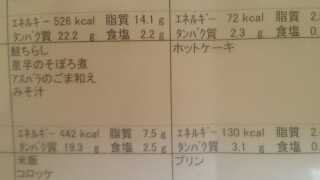 エネルギー 526 kcal 脂質 14.1 g
タンパク質 22.2 g 食塩 2.2 g
鮭ちらし
里芋のそぼろ煮
アスパラのごま和え
みそ汁
エネルギー 72 kcal 脂質
タンパク質 2.3 g 食塩
ホットケーキ
エネルギー 442 kcal 脂質 7.5 g
タンパク質 19.3 g 食塩 2.5 g
米飯
コロッケ
エネルギー 130 kcal 脂質
タンパク質 3.1 g 食塩
プリン